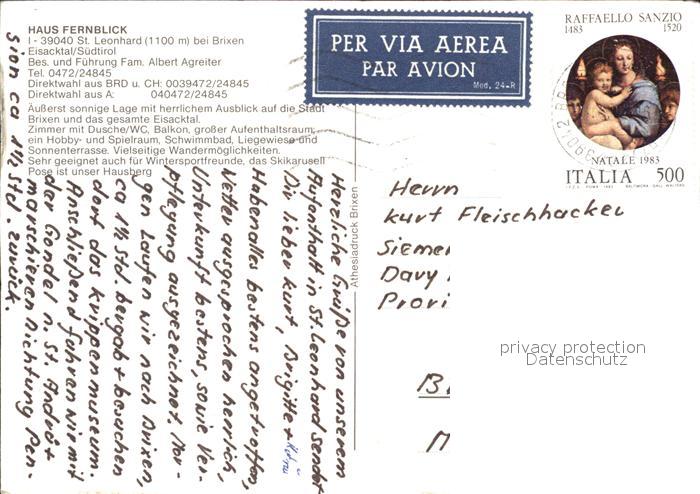 HAUS FERNBLICK
I - 39040 St. Leonhard (1100 m) bei Brixen
Eisacktal/Südtirol
Bes. und Führung Fam. Albert Agreiter
Tel. 0472/24845
Direktwahl aus BRD u. CH: 0039472/24845
Direktwahl aus A: 040472/24845
Äußerst sonnige Lage mit herrlichem Ausblick auf die Stadt
Brixen und das gesamte Eisacktal.
Zimmer mit Dusche/WC, Balkon, großer Aufenthaltsraum,
ein Hobby- und Spielraum, Schwimmbad, Liegewiese und
Sonnenterrasse. Vielseitige Wandermöglichkeiten.
Sehr geeignet auch für Wintersportfreunde, das Skikarusell
Pose ist unser Hausberg
PER VIA AEREA
PAR AVION
Mod. 24-R
RAFFAELLO SANZIO
1483 1520
NATALE 1983
ITALIA 500
Athesiadruck Brixen
Herzliche Grüße von unserem
Aufenthalt in St. Leonhard sendet
Dir lieber Kurt, Brigitte +
Haben alles bestens angetroffen,
Wetter ausgesprochen herrlich,
Unterkunft bestens, sowie Ver-
pflegung ausgezeichnet. Mor-
gen Laufen wir nach Brixen,
ca 1½ Std. bergab + besuchen
dort das Krippenmuseum.
Anschließend fahren wir mit
der Gondel n. St. Andrä +
marschieren Richtung Pen-
sion ca 1½ Std. zurück.
Herrn
Kurt Fleischhacker
Siemen
Davy
Provi
B
M
privacy protection
Datenschutz